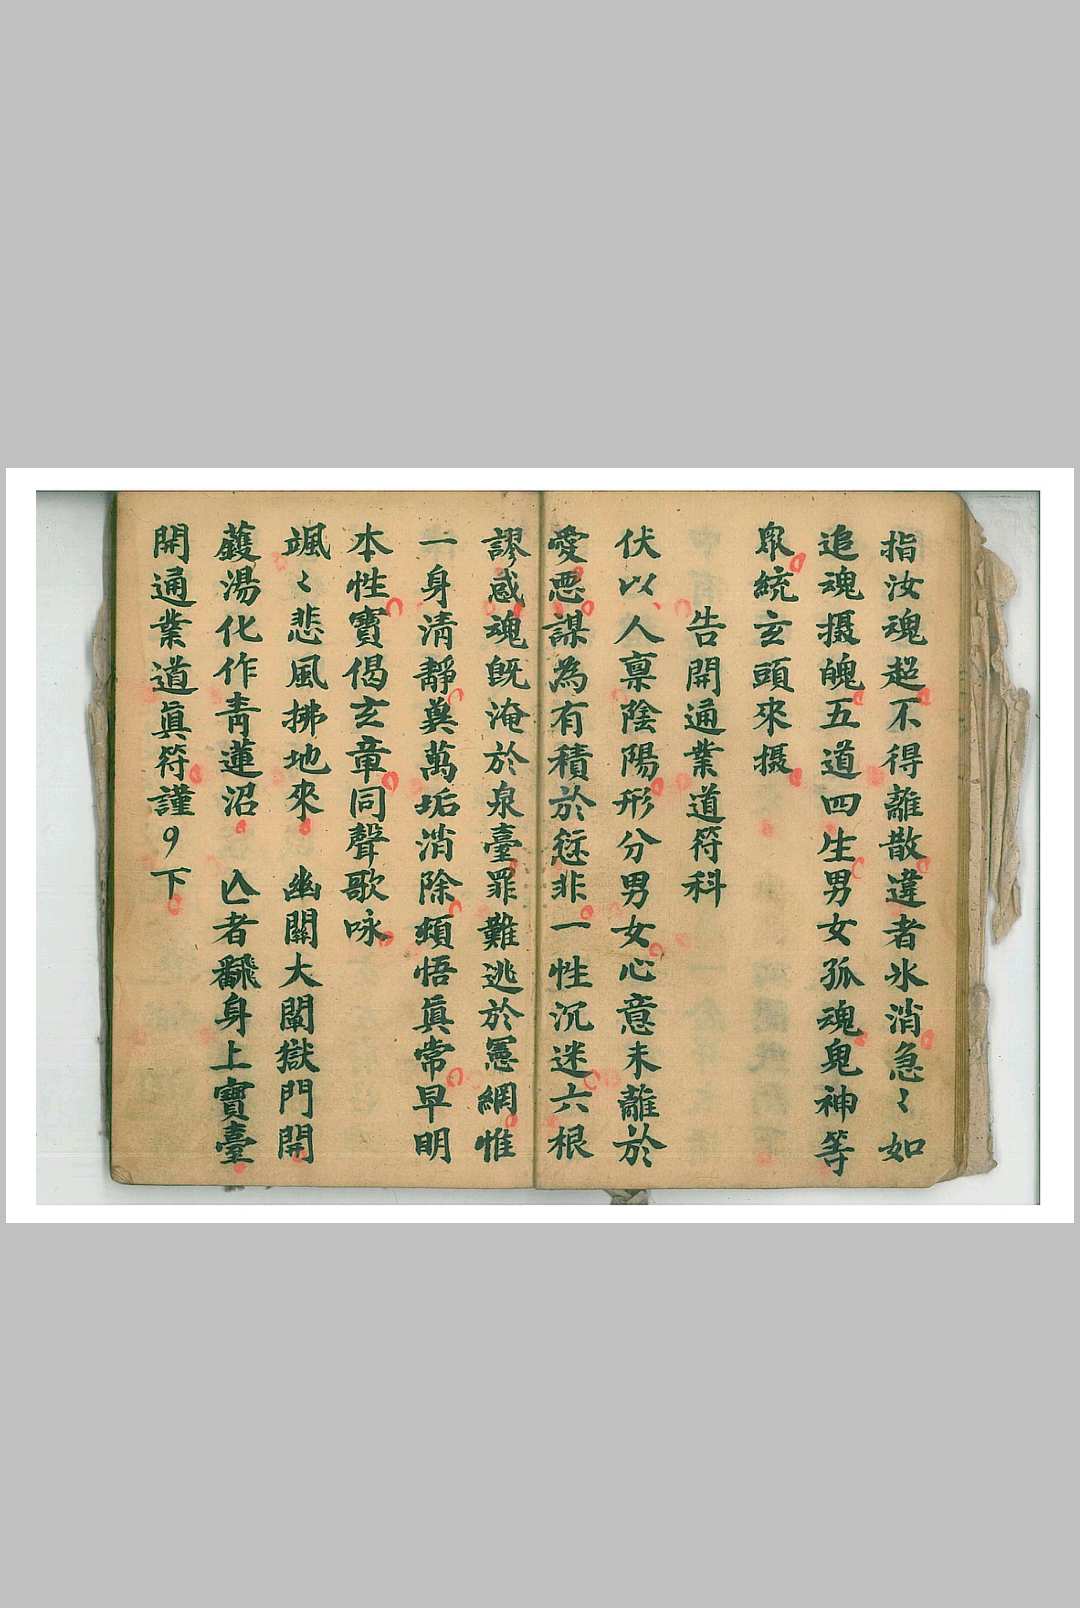 指汝魂超不得離散違者氷消急〻如
追魂摄魄五道四生男女孤魂鬼神等
眾統玄頭來摄
告開通業道符科
伏以人禀陰陽形分男女心意未離於
愛恶謀為有積於愆非一性沉迷六根
謬惑魂旣淹於泉臺罪難逃於憲網惟
一身清靜奠萬垢消除頓悟眞常早明
本性寶偈玄章同聲歌咏
颯〻悲風拂地來 幽關大闡獄門開
蠖湯化作青蓮沼 亾者飜身上寶臺
開通業道眞符謹り下